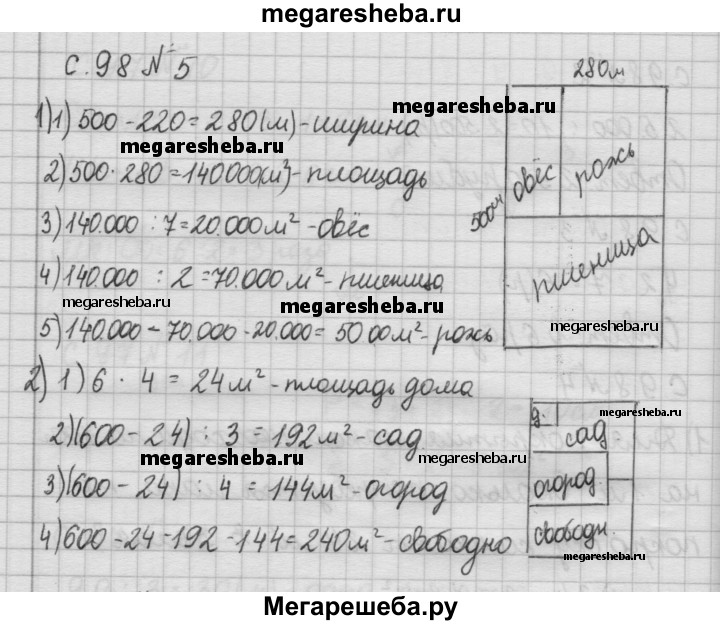 megaresheba.ru
с. 98 № 5
280м
megaresheba.ru
1) 1) 500 - 220 = 280 (м) - ширина
megaresheba.ru
2) 500 · 280 = 140000 (м²) - площадь
овёс рожь
500м
3) 140.000 : 7 = 20.000 м² - овёс
пшеница
4) 140.000 : 2 = 70.000 м² - пшеница
megaresheba.ru megaresheba.ru
5) 140.000 - 70.000 - 20.000 = 5000 м² - рожь
megaresheba.ru
2) 1) 6 · 4 = 24 м² - площадь дома
д. megaresheba.ru
сад
2) (600 - 24) : 3 = 192 м² - сад
megaresheba.ru megaresheba.ru
3) (600 - 24) : 4 = 144 м² - огород
огород
4) 600 - 24 - 192 - 144 = 240 м² - свободно
свободн
megaresheba.ru megaresheba.ru
Мегарешеба.ру